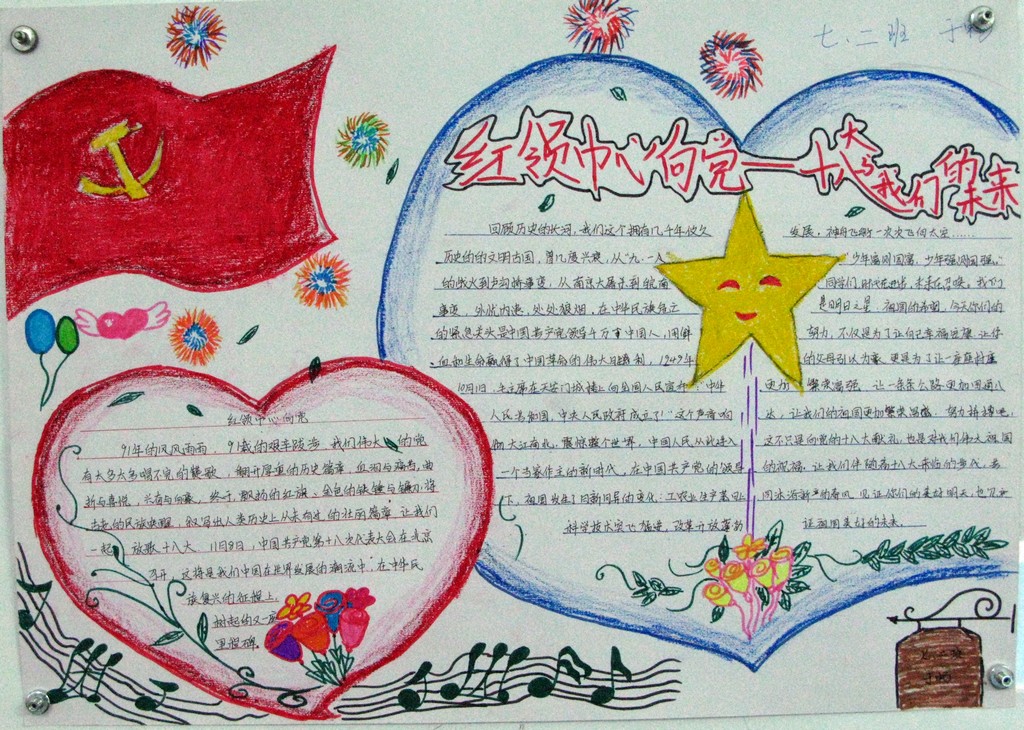 七.二班
红领巾心向党——十八大与我们的未来
回顾历史的长河,我们这个拥有几千年悠久
历史的的文明古国,曾几度兴衰,从“九·一八
的炮火到卢沟桥事变,从南京大屠杀到皖南
事变,外忧内患,处处狼烟,在中华民族危亡
的紧急关头是中国共产党领导千万重中国人,用鲜
血和生命赢得了中国革命的伟大胜利,1949年
10月1日,毛主席在天安门城楼上向全国人民宣布:“中华
人民共和国,中央人民政府成立了”这个声音响
彻大江南北,震惊整个世界,中国人民从此进入
一个当家作主的新时代,在中国共产党的领导
下,祖国发生了日新月异的变化:工农业生产
科学技术突飞猛进,改革开放蓬勃
发展,神舟飞船一次次飞向太空……
“少年富则国富,少年强则国强”
同学们,时代在进步,未来在召唤,我们
是明日之星,祖国的希望,今天你们的
努力,不仅是为了让自己幸福
的父母引以为豪,更是为了让一座座
更加繁荣富强,让一条条公路更加四通八
达,让我们的祖国更加繁荣富强,努力拼搏吧,
这不只是向党的十八大献礼,也是对我们伟大祖国
的祝福,让我们伴随着十八大来临的步伐,去
沐浴新的春风,见证你们的美好明天,也见证
证祖国美好的未来。
红领巾心向党
91年的风风雨雨,91载的艰辛跋涉,我们伟大的党
有太多太多唱不完的赞歌,翻开厚重的历史篇章,血泪与福当,曲
折与喜悦,兴奋与自豪,终于,鲜扬的红旗,金色的铁锤与镰刀,将
古老的民族唤醒,叙写出人类历史上从未有过的壮丽篇章,让我们
一起,放歌十八大,11月8日,中国共产党第十八次代表大会在北京
召开,这将是我们中国在世界发展的潮流中,在中华民
族复兴的征程上,
树起的又一座
里程碑。